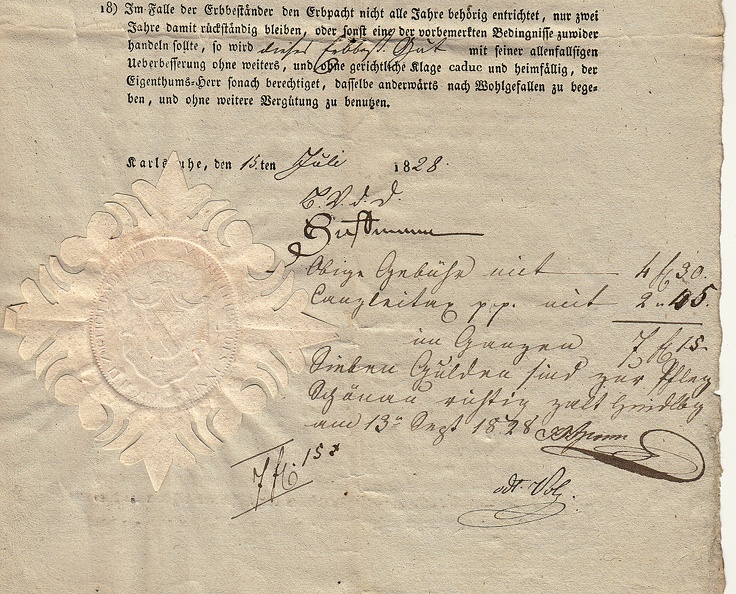 18) Im Falle der Erbbeständer den Erbpacht nicht alle Jahre behörig entrichtet, nur zwei
Jahre damit rückständig bleiben, oder sonst eine der vorbemerkten Bedingnisse zuwider
handeln sollte, so wird dieses Erbbest. Gut mit seiner allenfallsigen
Ueberbesserung ohne weiters, und ohne gerichtliche Klage caduc und heimfällig, der
Eigenthums-Herr sonach berechtiget, dasselbe anderwärts nach Wohlgefallen zu bege-
ben, und ohne weitere Vergütung zu benutzen.
Karlsruhe, den 15.ten Juli 1828.
T. V. d. D.
Obige Gebühr mit 4 fl 30.
Canzleitax p.p. mit 2 " 45.
im Ganzen 7 fl 15.
Sieben Gulden sind zur Pfleg
Schönau richtig zalt
am 13n Sept 1828
7 fl. 15 x